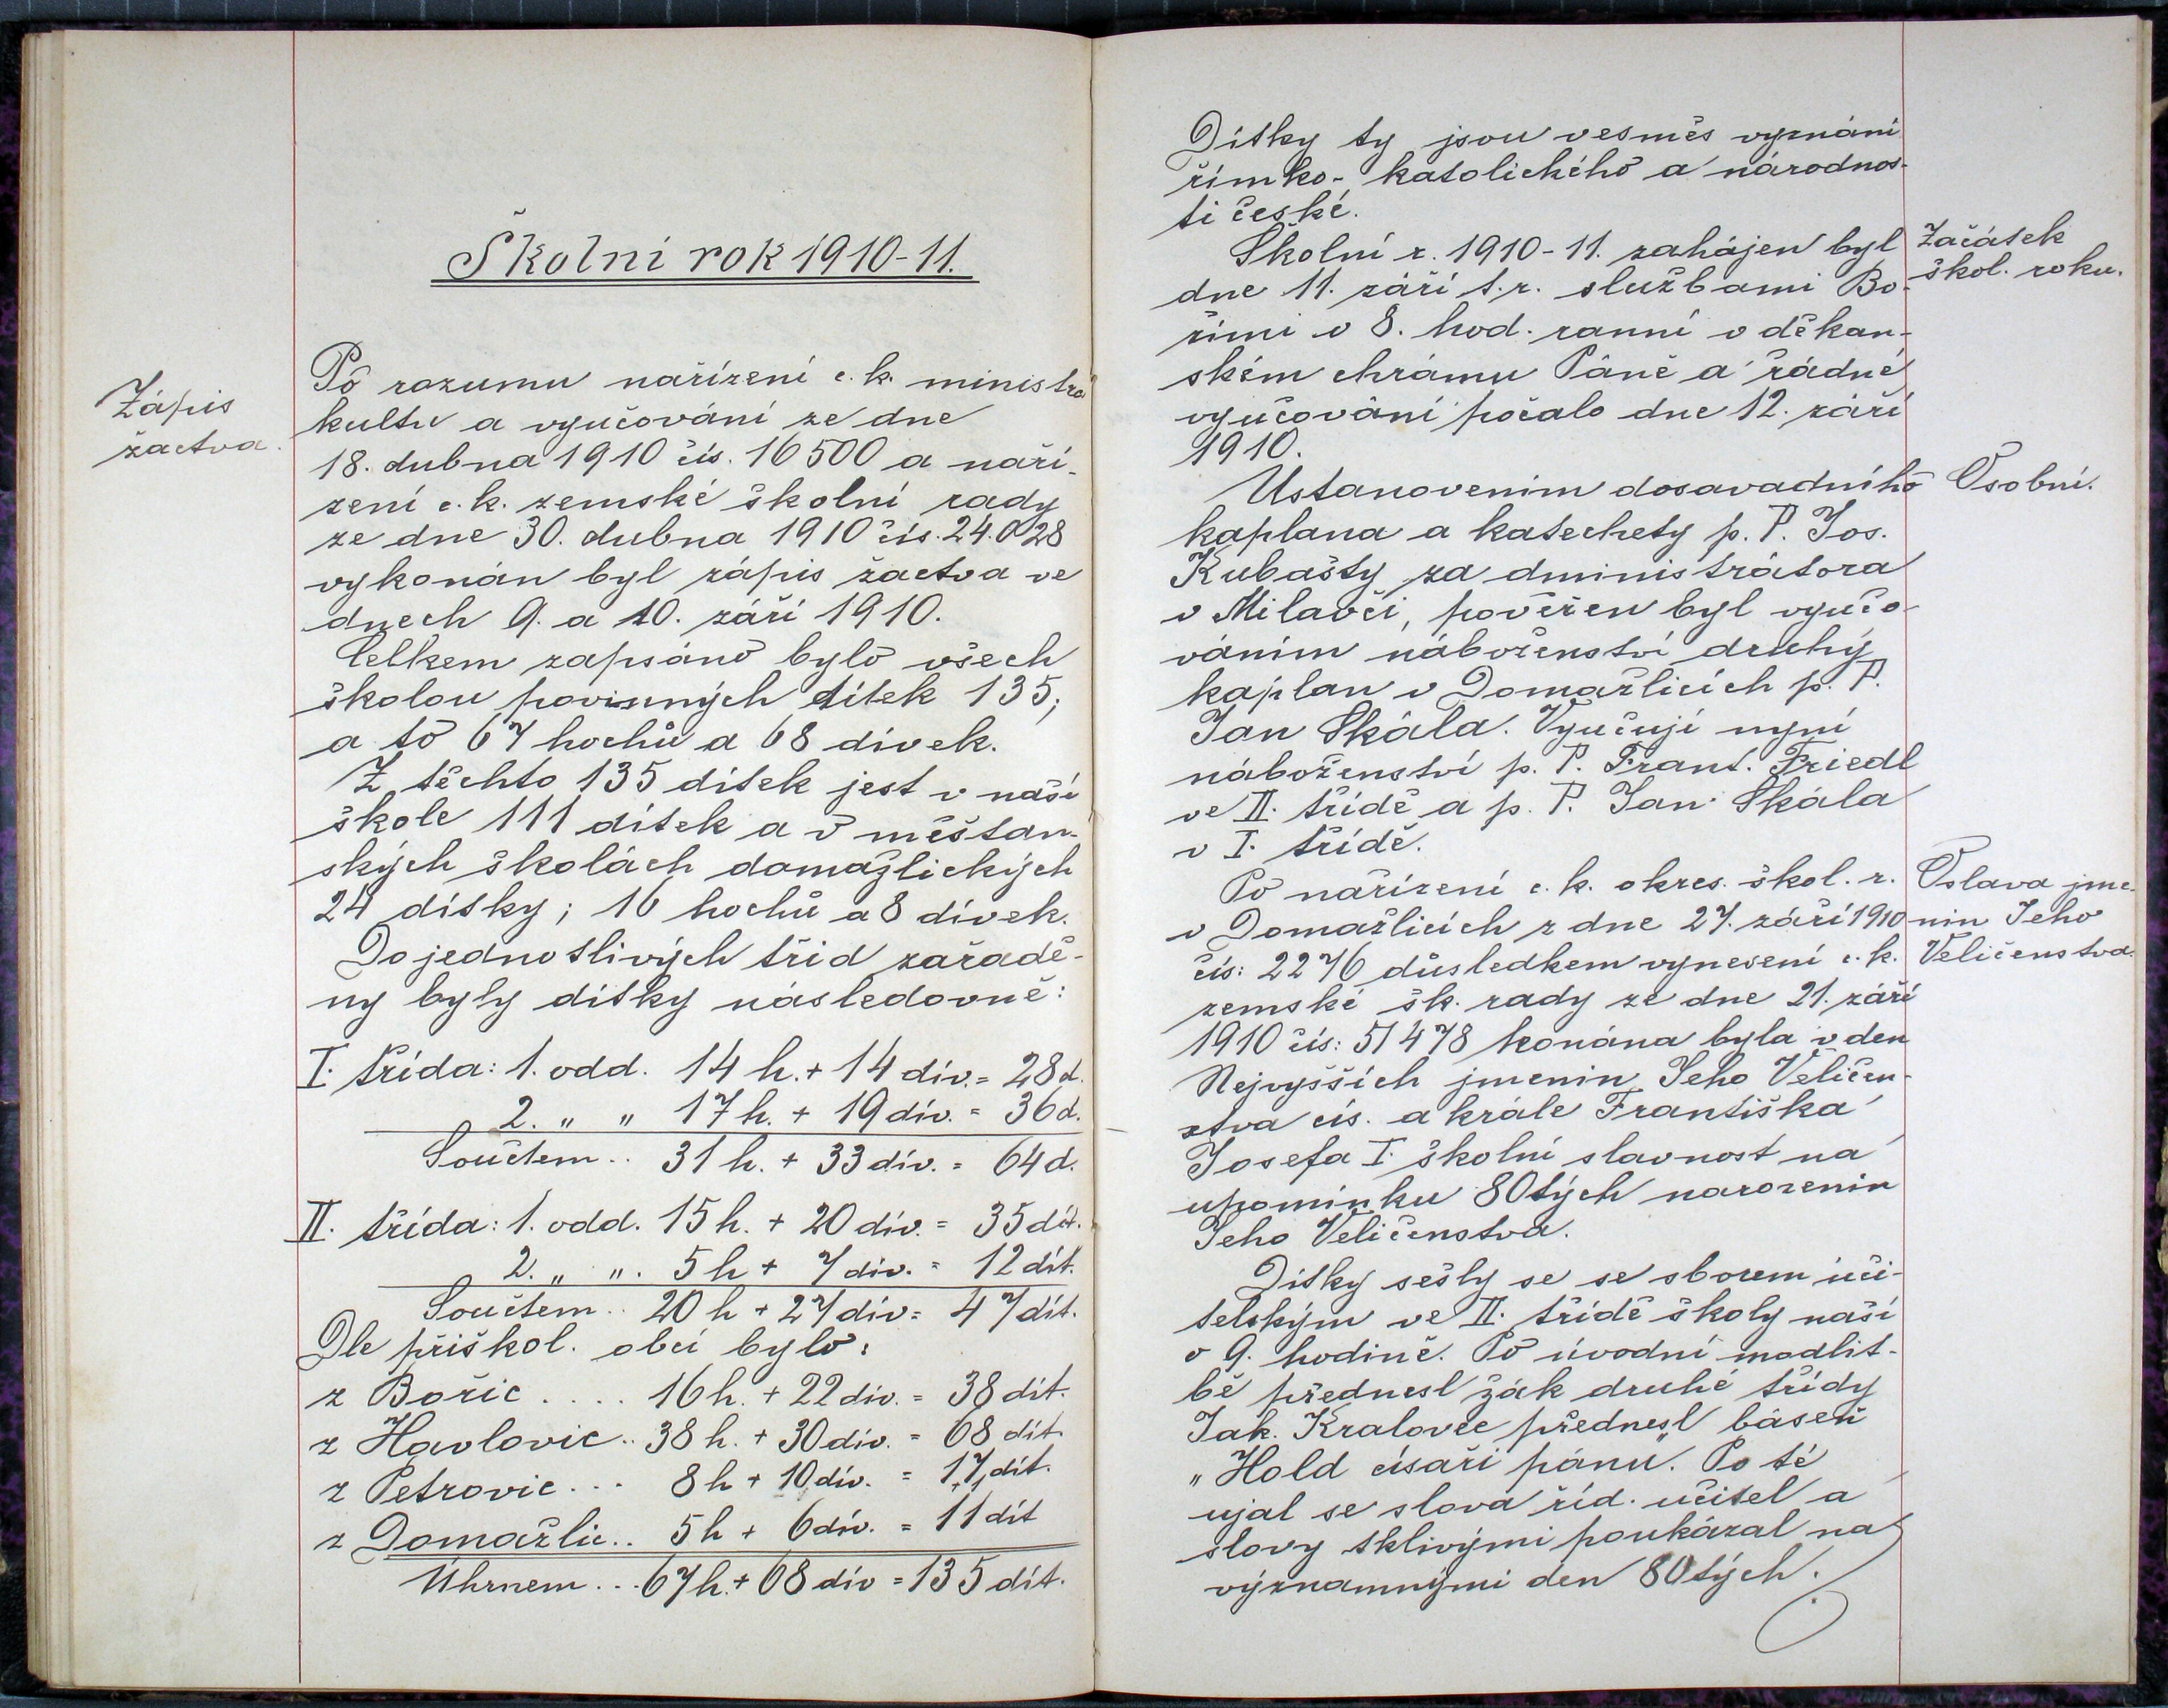 Školní rok 1910-11.
Zápis
žactva.
Po rozumu nařízení c. k. ministra
kultu a vyučování ze dne
18. dubna 1910 čís. 16500 a naří-
zení c. k. zemské školní rady
ze dne 30. dubna 1910 čís. 24.028
vykonán byl zápis žactva ve
dnech 9. a 10. září 1910.
Celkem zapsáno bylo všech
školou povinných dítek 135;
a to 67 hochů a 68 dívek.
Z těchto 135 dítek jest v naší
škole 111 dítek a v měšťan-
ských školách domažlických
24 dítky; 16 hochů a 8 dívek.
Do jednotlivých tříd zařadě-
ny byly dítky následovně:
I. třída: 1. odd. 14 h. + 14 dív. = 28 d.
2. " " 17 h. + 19 dív. = 36 d.
Součtem .. 31 h. + 33 dív. = 64 d.
II. třída: 1. odd. 15 h. + 20 dív. = 35 dít.
2. " ". 5 h + 7 dív. = 12 dít.
Součtem .. 20 h + 27 dív = 47 dít.
Dle přiškol. obcí bylo:
z Bořic .... 16 h. + 22 dív. = 38 dít.
z Havlovic .. 38 h. + 30 dív. = 68 dít.
z Petrovic ... 8 h + 10 dív. = 17 dít.
z Domažlic .. 5 h + 6 dív. = 11 dít
Úhrnem ... 67 h. + 68 dív = 135 dít.
Dítky ty jsou vesměs vyznání
římko-katolického a národnos-
ti české.
Začátek
škol. roku.
Školní r. 1910-11. zahájen byl
dne 11. září t. r. službami Bo-
žími v 8. hod. ranní v děkan-
ském chrámu Páně a řádné
vyučování počalo dne 12. září
1910.
Osobní.
Ustanovením dosavadního
kaplana a katechety p. P. Jos.
Kubašty za dministrátora
v Milavči, pověřen byl vyučo-
váním náboženství druhý
kaplan v Domažlicích p. P.
Jan Skála. Vyučují nyní
náboženství p. P. Frant. Friedl
ve II. třídě a p. P. Jan Skála
v I. třídě.
Oslava jme-
nin Jeho
Veličenstva.
Po nařízení c. k. okres. škol. r.
v Domažlicích z dne 27. září 1910
čís: 2276 důsledkem vynesení c. k.
zemské šk. rady ze dne 21. září
1910 čís: 51478 konána byla v den
Nejvyšších jmenin Jeho Veličen-
stva cís. a krále Františka
Josefa I. školní slavnost na
upomínku 80tých narozenin
Jeho Veličenstva.
Dítky sešly se se sborem uči-
telským ve II. třídě školy naší
o 9. hodině. Po úvodní modlit-
bě přednesl žák druhé třídy
Jak. Kralovec přednesl báseň
„Hold císaři pánu". Po té
ujal se slova říd. učitel a
slovy sklivými poukázal na
významnými den 80tých.